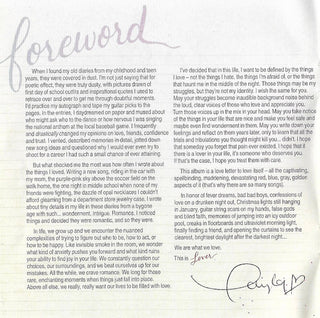 foreword
When I found my old diaries from my childhood and teen
years, they were covered in dust. I'm not just saying that for
poetic effect, they were truly dusty, with pictures drawn of
first day of school outfits and inspirational quotes I used to
retrace over and over to get me through doubtful moments.
I'd practice my autograph and tape my guitar picks to the
pages. In the entries, I daydreamed on paper and mused about
who might ask who to the dance or how nervous I was singing
the national anthem at the local baseball game. I frequently
and drastically changed my opinions on love, friends, confidence
and trust. I vented, described memories in detail, jotted down
new song ideas and questioned why I would ever even try to
shoot for a career I had such a small chance of ever attaining.
But what shocked me the most was how often I wrote about
the things I loved. Writing a new song, riding in the car with
my mom, the purple-pink sky above the soccer field on the
walk home, the one night in middle school when none of my
friends were fighting, the dazzle of opal necklaces I couldn't
afford gleaming from a department store jewelry case. I wrote
about tiny details in my life in these diaries from a bygone
age with such... wonderment. Intrigue. Romance. I noticed
things and decided they were romantic, and so they were.
In life, we grow up and we encounter the nuanced
complexities of trying to figure out who to be, how to act, or
how to be happy. Like invisible smoke in the room, we wonder
what kind of anxiety pushes you forward and what kind ruins
your ability to find joy in your life. We constantly question our
choices, our surroundings, and we beat ourselves up for our
mistakes. All the while, we crave romance. We long for those
rare, enchanting moments when things just fall into place.
Above all else, we really, really want our lives to be filled with love.
I've decided that in this life, I want to be defined by the things
I love - not the things I hate, the things I'm afraid of, or the things
that haunt me in the middle of the night. Those things may be my
struggles, but they're not my identity. I wish the same for you.
May your struggles become inaudible background noise behind
the loud, clear voices of those who love and appreciate you.
Turn those voices up in the mix in your head. May you take notice
of the things in your life that are nice and make you feel safe and
maybe even find wonderment in them. May you write down your
feelings and reflect on them years later, only to learn that all the
trials and tribulations you thought might kill you... didn't. I hope
that someday you forget that pain ever existed. I hope that if
there is a lover in your life, it's someone who deserves you.
If that's the case, I hope you treat them with care.
This album is a love letter to love itself - all the captivating,
spellbinding, maddening, devastating, red, blue, gray, golden
aspects of it (that's why there are so many songs).
In honor of fever dreams, bad bad boys, confessions of
love on a drunken night out, Christmas lights still hanging
in January, guitar string scars on my hands, false gods
and blind faith, memories of jumping into an icy outdoor
pool, creaks in floorboards and ultraviolet morning light,
finally finding a friend, and opening the curtains to see the
clearest, brightest daylight after the darkest night...
We are what we love.
This is Lover